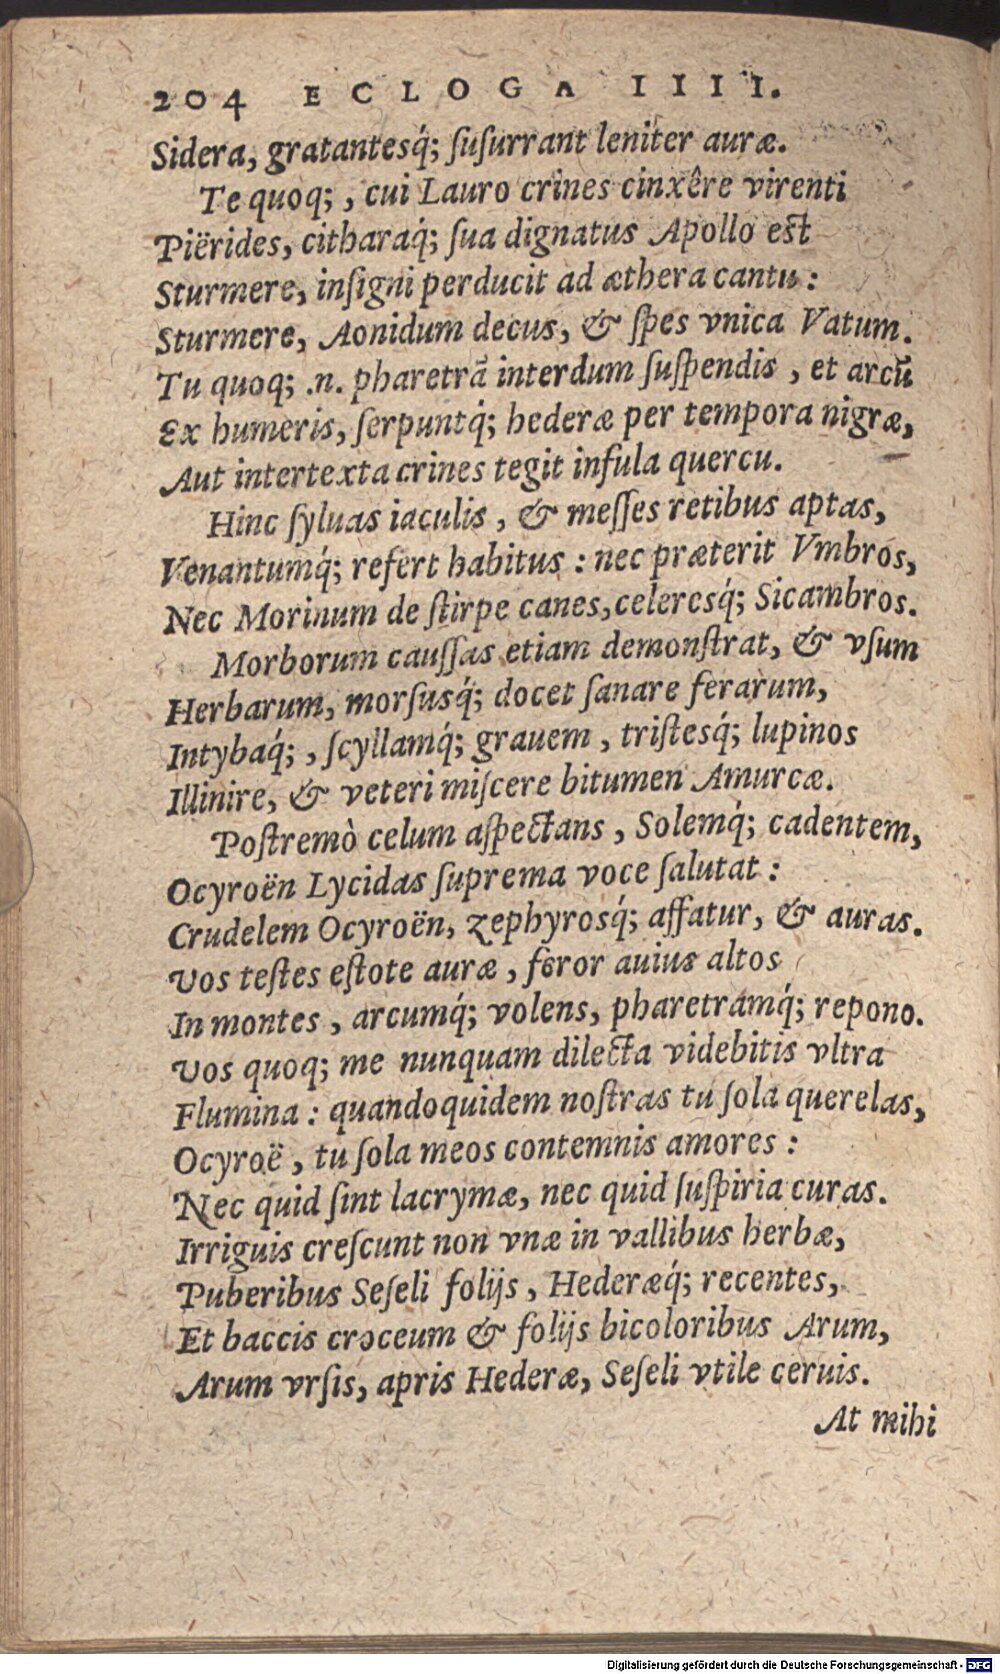 204 ECLOGA IIII.
Sidera, gratantesq́; ſuſurrant leniter auræ.
Te quoq; , cui Lauro crines cinxêre virenti
Piërides, citharaq́; ſua dignatus Apollo est
Sturmere, inſigni perducit ad æthera cantu :
Sturmere, Aonidum decus, & ſpes vnica Vatum.
Tu quoq; .n. pharetrã interdum ſuſpendis , et arcũ
Ex humeris, ſerpuntq́; hederæ per tempora nigræ,
Aut intertexta crines tegit infula quercu.
Hinc ſyluas iaculis , & meſſes retibus aptas,
Venantumq́; refert habitus : nec præterit Vmbros,
Nec Morinum de ſtirpe canes, celeresq́; Sicambros.
Morborum cauſſas etiam demonſtrat, & vſum
Herbarum, morſusq́; docet ſanare ferarum,
Intybaq́; , ſcyllamq́; grauem , triſtesq́; lupinos
Illinire, & veteri miſcere bitumen Amurcæ.
Poſtremò celum aſpectans , Solemq́; cadentem,
Ocyroën Lycidas ſuprema voce ſalutat :
Crudelem Ocyroën, zephyrosq́; affatur, & auras.
Vos teſtes eſtote auræ , feror auius altos
In montes , arcumq́; volens, pharetramq́; repono.
Vos quoq; me nunquam dilecta videbitis vltra
Flumina : quandoquidem noſtras tu ſola querelas,
Ocyroë , tu ſola meos contemnis amores :
Nec quid ſint lacrymæ, nec quid ſuſpiria curas.
Irriguis creſcunt non vnæ in vallibus herbæ,
Puberibus Seſeli folijs , Hederæq́; recentes,
Et baccis croceum & folijs bicoloribus Arum,
Arum vrſis, apris Hederæ, Seſeli vtile ceruis.
At mihi
Digitalisierung gefördert durch die Deutsche Forschungsgemeinschaft - DFG